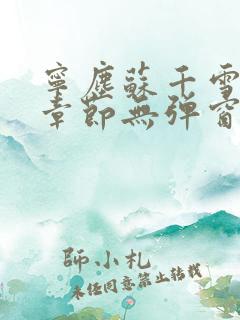 寧塵蘇千雪
章節無彈窗
師小札
未經同意禁止轉載